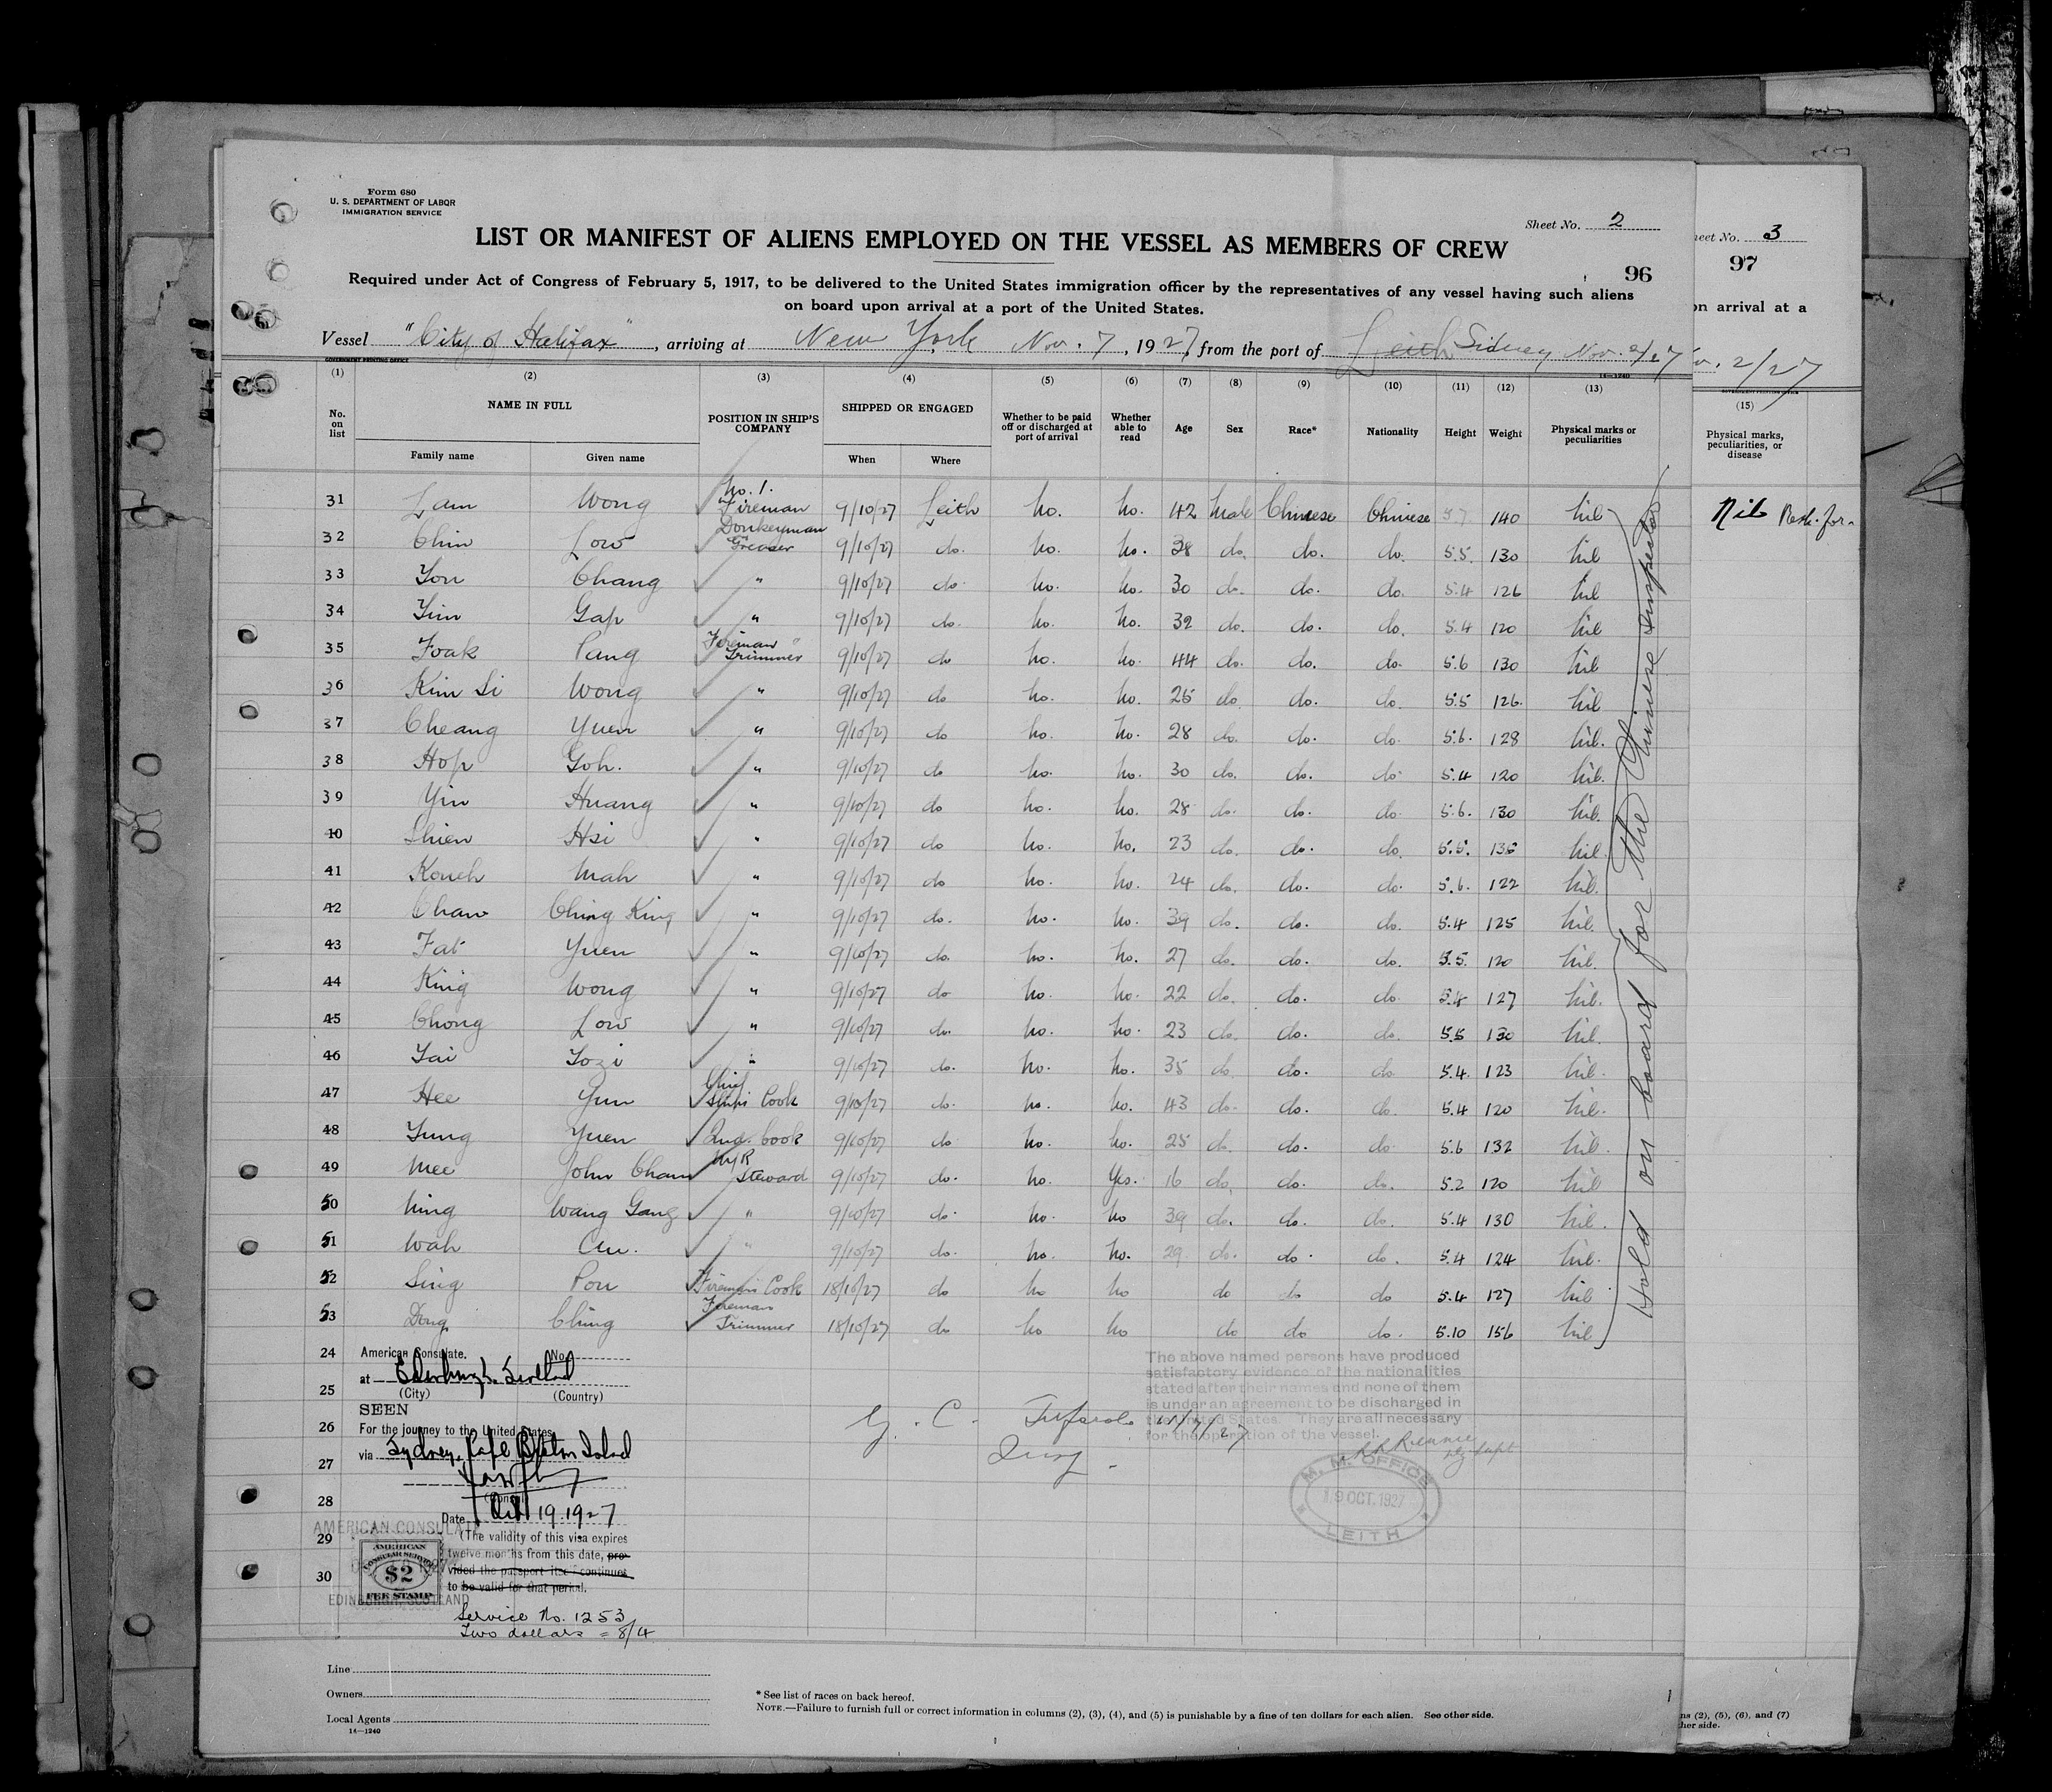 Form 680
U. S. DEPARTMENT OF LABOR
IMMIGRATION SERVICE
Sheet No. 2
LIST OR MANIFEST OF ALIENS EMPLOYED ON THE VESSEL AS MEMBERS OF CREW
96
Required under Act of Congress of February 5, 1917, to be delivered to the United States immigration officer by the representatives of any vessel having such aliens
on board upon arrival at a port of the United States.
Vessel "City of Halifax", arriving at New York Nov. 7, 1927, from the port of Leith Sidney Nov. 2/27
GOVERNMENT PRINTING OFFICE 14—1240
(1) (2) (3) (4) (5) (6) (7) (8) (9) (10) (11) (12) (13)
No. on list NAME IN FULL Family name Given name POSITION IN SHIP'S COMPANY SHIPPED OR ENGAGED When Where Whether to be paid off or discharged at port of arrival Whether able to read Age Sex Race* Nationality Height Weight Physical marks or peculiarities
31 Lam Wong No. 1. Fireman 9/10/27 Leith no. no. 42 Male Chinese Chinese 5.7 140 nil
32 Chin Low Donkeyman Greaser 9/10/27 do. no. no. 38 do. do. do. 5.5. 130 nil
33 You Chang " 9/10/27 do no. no. 30 do. do. do. 5.4 126 nil
34 Yim Gap " 9/10/27 do. no. no. 32 do. do. do. 5.4 120 nil
35 Foak Pang Fireman Trimmer 9/10/27 do no. no. 44 do. do. do. 5.6 130 nil
36 Kim Si Wong " 9/10/27 do no. no. 25 do. do. do. 5.5 126. nil
37 Cheang Yuen " 9/10/27 do no. no. 28 do. do. do. 5.6. 128 nil.
38 Hop Goh. " 9/10/27 do no. no. 30 do. do. do. 5.4 120 nil.
39 Yin Huang " 9/10/27 do no. no. 28 do. do. do. 5.6. 130 nil.
40 Shien Hsi " 9/10/27 do no. no. 23 do. do. do. 5.5. 135 nil.
41 Koueh Mah " 9/10/27 do no. no. 24 do. do. do. 5.6. 122 nil.
42 Chaw Ching King " 9/10/27 do. no. no. 39 do. do. do. 5.4 125 nil.
43 Fat Yuen " 9/10/27 do. no. no. 27 do. do. do. 5.5. 120 nil.
44 King Wong " 9/10/27 do no. no. 22 do. do. do. 5.4 127 nil.
45 Chong Low " 9/10/27 do. no. no. 23 do. do. do. 5.5 130 nil.
46 Tai Sozi " 9/10/27 do. no. no. 35 do. do. do 5.4. 123 nil.
47 Hee Yun Chief Ship's Cook 9/10/27 do. no. no. 43 do. do. do. 5.4 120 nil.
48 Yung Yuen 2nd. Cook 9/10/27 do no. no. 25 do. do. do 5.6 132 nil.
49 Mee John Cham M/R Steward 9/10/27 do. no. Yes. 16 do. do. do. 5.2 120 nil
50 Ning Wang Gang " 9/10/27 do. no. no 39 do. do. do. 5.4 130 nil.
51 Wah " 9/10/27 do. no. no. 29. do. do. do. 5.4 124 nil.
52 Sing Pou Fireman's Cook 18/10/27 do no no do do do 5.4 127 nil
53 Dong Ching Fireman Trimmer 18/10/27 do no no do do do. 5.10 156 nil
Held on board for the Chinese Inspector
24
25
26
27
28
29
30
American Consulate. No.
at Edinburgh Scotland
(City) (Country)
SEEN
For the journey to the United States
via Sydney, Cape Breton Island
(Consul)
Date Oct 19. 1927
(The validity of this visa expires
twelve months from this date, pro-
vided the passport itself continues
to be valid for that period.
AMERICAN CONSULATE
EDINBURGH, SCOTLAND
AMERICAN
CONSULAR SERVICE
$2
FEE STAMP
Service No. 1253
Two dollars = 8/4
The above named persons have produced
satisfactory evidence of the nationalities
stated after their names and none of them
is under an agreement to be discharged in
the United States. They are all necessary
for the operation of the vessel.
G. C. 11/7/27
Insp.
M. M. OFFICE
19 OCT. 1927
LEITH
Line
Owners
Local Agents
14—1240
* See list of races on back hereof.
NOTE.—Failure to furnish full or correct information in columns (2), (3), (4), and (5) is punishable by a fine of ten dollars for each alien. See other side.
eet No. 3
97
on arrival at a
v. 2/27
(15)
Physical marks, peculiarities, or disease
Nil
ns (2), (5), (6), and (7)
her side.